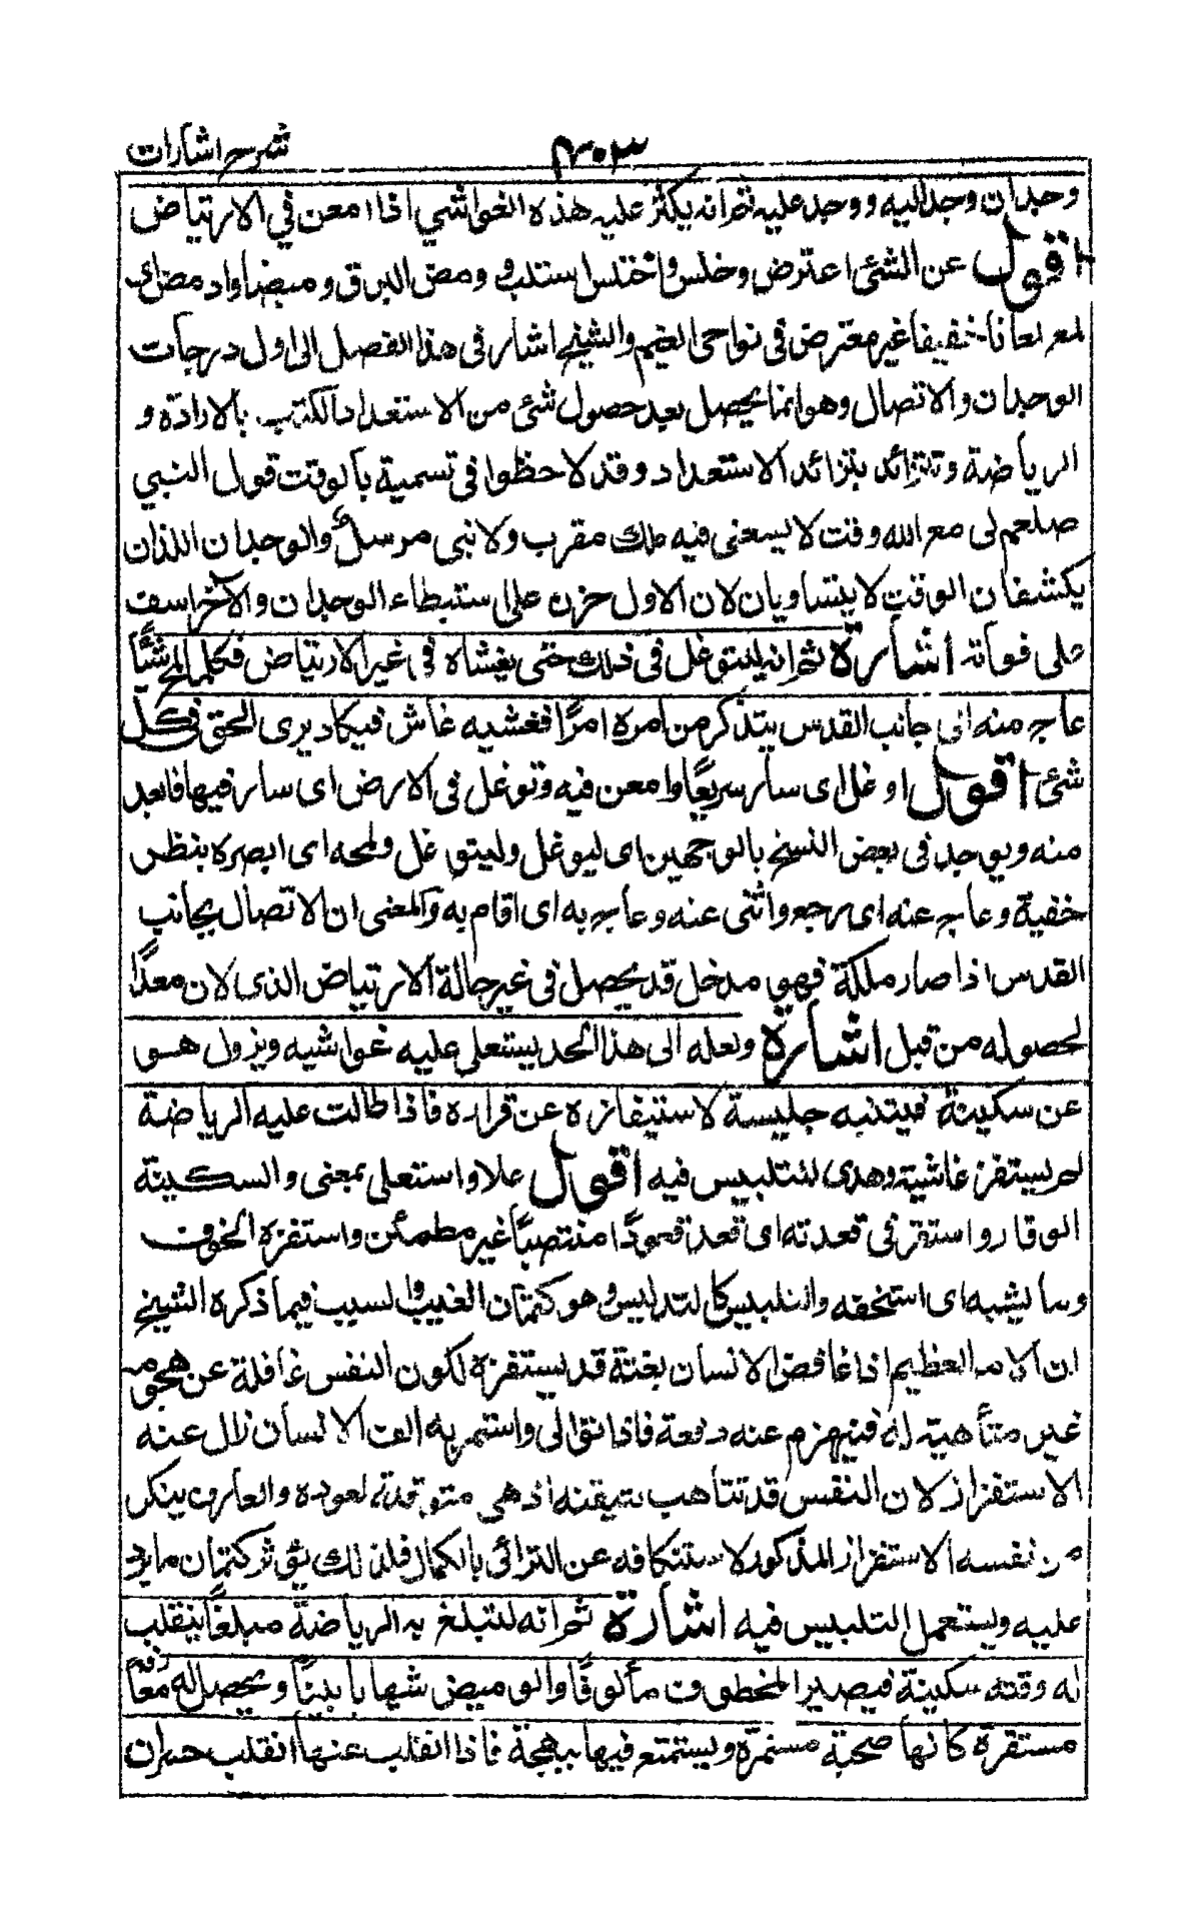 شرح اشارات
۴۰۳
وجدان وجد اليه ووجد عليه ثم انه يكثر عليه هذه الغواشي اذا امعن في الارتياض
اقول عن الشئ اعترض وخلس واختلس استلب و ومض البرق وميضا واومض اى
لمع لمعانا خفيفا غير معترض فى نواحى الغيم والشيخ اشار فى هذا الفصل الى اول درجات
الوجدان والاتصال وهو انما يحصل بعد حصول شئ من الاستعداد المكتسب بالارادة و
الرياضة وتتزائد بتزائد الاستعداد وقد لاحظوا فى تسمية بالوقت قول النبي
صلعم لى مع الله وقت لا يسعنى فيه ملك مقرب ولا نبى مرسل والوجدان اللذان
يكشفان الوقت لا يتساويان لان الاول حزن على استبطاء الوجدان والآخر اسف
على فواته اشارة ثم انه ليتوغل فى ذلك حتى يغشاه فى غير الارتياض فكلما لمح شيًا
عاج منه الى جانب القدس يتذكر من امره امرًا فغشيه غاش فيكاد يرى الحق فى كل
شئ اقول اوغل اى سار سريعًا وامعن فيه وتوغل فى الارض اى سار فيها فابعد
منه ويوجد فى بعض النسخ بالوجهين اى ليوغل وليتوغل ولمحه اى ابصره بنظر
خفية وعاج عنه اى رجع وانثنى عنه وعاج به اى اقام به والمعنى ان الاتصال بجانب
القدس اذا صار ملكة فهو مدخل قد يحصل فى غير حالة الارتياض الذى لان معدًا
لحصوله من قبل اشارة ولعله الى هذا الحد يستعلى عليه غواشيه ويزول هو
عن سكينة فيتنبه جليسة لاستيفازه عن قراره فاذا طالت عليه الرياضة
لم يستفز غاشية وهدى للتلبيس فيه اقول علا واستعلى بمعنى والسكينة
الوقار واستقر فى قعدته اى قعد قعودًا منتصبًا غير مطمئن واستفزه الخوف
وما يشبه اى استخفه والتلبيس كالتدليس وهو كتمان العيب والسبب فيما ذكره الشيخ
ان الامر العظيم اذا غافض الانسان بغتة قد يستفزه لكون النفس غافلة عن هجومه
غير متأهبة له فينهزم عنه دفعة فاذا توالى واستمر به الف الانسان زال عنه
الاستفزاز لان النفس قد تتأهب بتيقنه اذ هى متوقعة لعوده والعارف ينكر
من نفسه الاستفزاز المذكور لاستنكافه عن الترائى بالكمال فلذلك يؤثر كتمان ما يرد
عليه ويستعمل التلبيس فيه اشارة ثم انه لتبلغ به الرياضة مبلغًا ينقلب
له وقته سكينة فيصير المخطوف مألوفًا والوميض شهابا بينًا ويحصل له معارفة
مستقرة كانها صحبة مستمرة ويستمتع فيها ببهجة فاذا انقلب عنها انقلب حيران